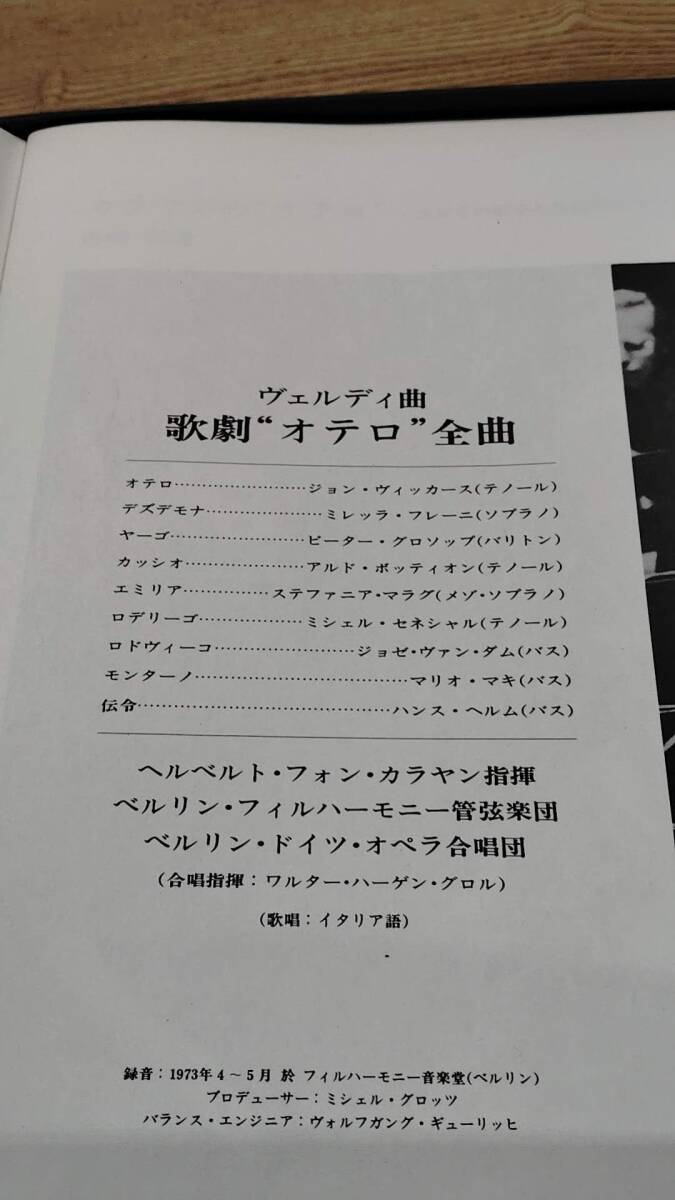 ヴェルディ曲
歌劇“オテロ”全曲
オテロ……………………ジョン・ヴィッカース(テノール)
デズデモナ…………………ミレッラ・フレーニ(ソプラノ)
ヤーゴ……………………ピーター・グロソップ(バリトン)
カッシオ…………………アルド・ボッティオン(テノール)
エミリア……………ステファニア・マラグ(メゾ・ソプラノ)
ロデリーゴ………………ミシェル・セネシャル(テノール)
ロドヴィーコ……………………ジョゼ・ヴァン・ダム(バス)
モンターノ………………………………マリオ・マキ(バス)
伝令……………………………………ハンス・ヘルム(バス)
ヘルベルト・フォン・カラヤン指揮
ベルリン・フィルハーモニー管弦楽団
ベルリン・ドイツ・オペラ合唱団
(合唱指揮：ワルター・ハーゲン・グロル)
(歌唱：イタリア語)
録音：1973年4～5月 於 フィルハーモニー音楽堂(ベルリン)
プロデューサー：ミシェル・グロッツ
バランス・エンジニア：ヴォルフガング・ギューリッヒ